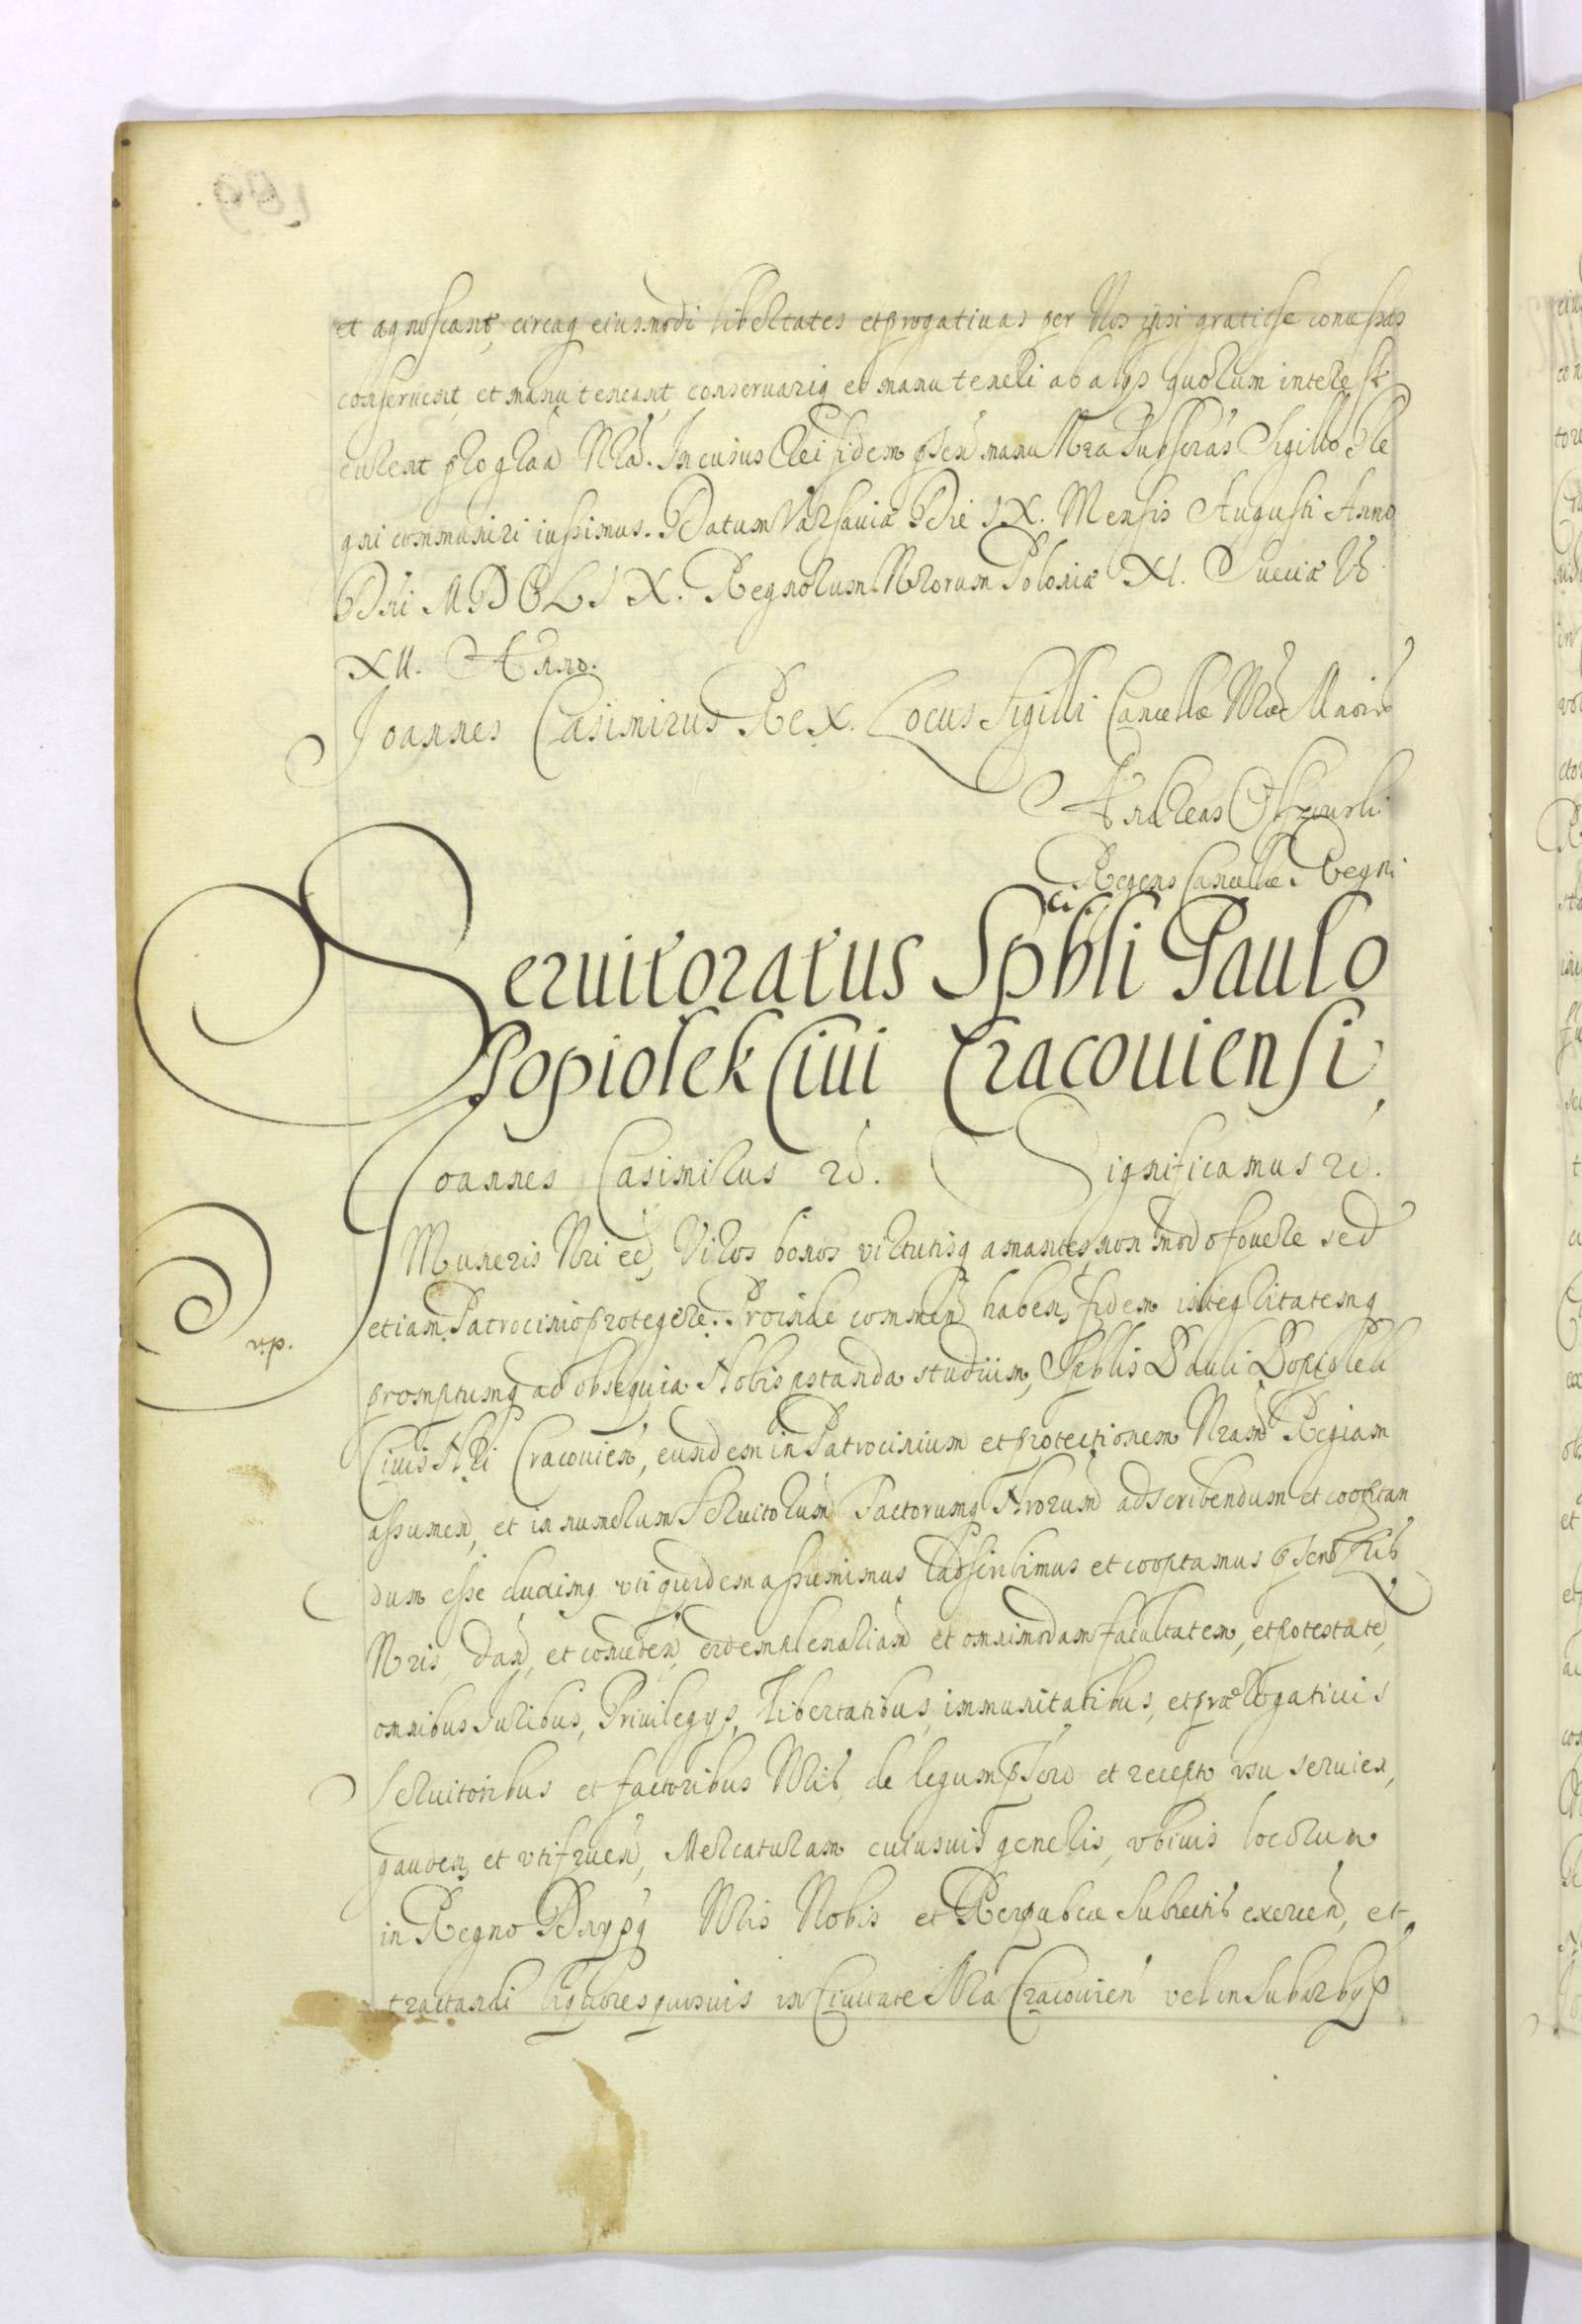 et agnoscant, circaq eiusmodi libertates et progatiuas per Nos ipsi gratiose concessas
conseruent, et manuteneant, conseruariq et manuteneri ab alijs quorum interest
curent pro gtaa Nra. In cuius Rei fidem psen manu Nra Subscras Sigillo Re
gni communiri iussimus. Datum Varsauiæ Die IX. Mensis Augusti Anno
Dni MDCLIX. Regnorum Nrorum Poloniæ XI. Sueciæ Vo
XII. Anno.
Joannes Casimirus Rex. Locus Sigilli Cancellæ Mairis
Andreas
Regens Cancellæ Regni
Seruitoratus Spbli Paulo
Popiolek Ciui Cracouiensi
Joannes Casimirus Significamus
Muneris Nri ee, Viros bonos virtutisq amantes, non modo fouere sed
etiam Patrocinio protegere. Proinde commen haben, fidem integritatemq
promptumq ad obsequia Nobis pstanda studium, Spblis Pauli Popiolek
Ciuis Nri Cracouien, eundem in Patrocinium et protectionem Nram Regiam
assumen, et in numerum Seruitorum Factorumq Nrorum adscribendum et cooptan
dum esse duximq uti quidem assumimus adscribimus et cooptamus psentib
Nris, dan, et conceden, eidem plenariam et omnimodam facultatem, et potestate,
omnibus Juribus, Priuilegijs, libertatibus, immunitatibus, et prærogatiuis
seruitoribus et factoribus Nris, de legum pscro et recepto usu seruien,
gauden, et utifruen, Mercaturam cuiusuis generis, ubiuis locorum
in Regno Dnijsq Nris Nobis et Reipubcæ Subiectis exercen, et
tractandi liquores quosuis in Ciuitate Nra Cracouien vel in Suburbijs